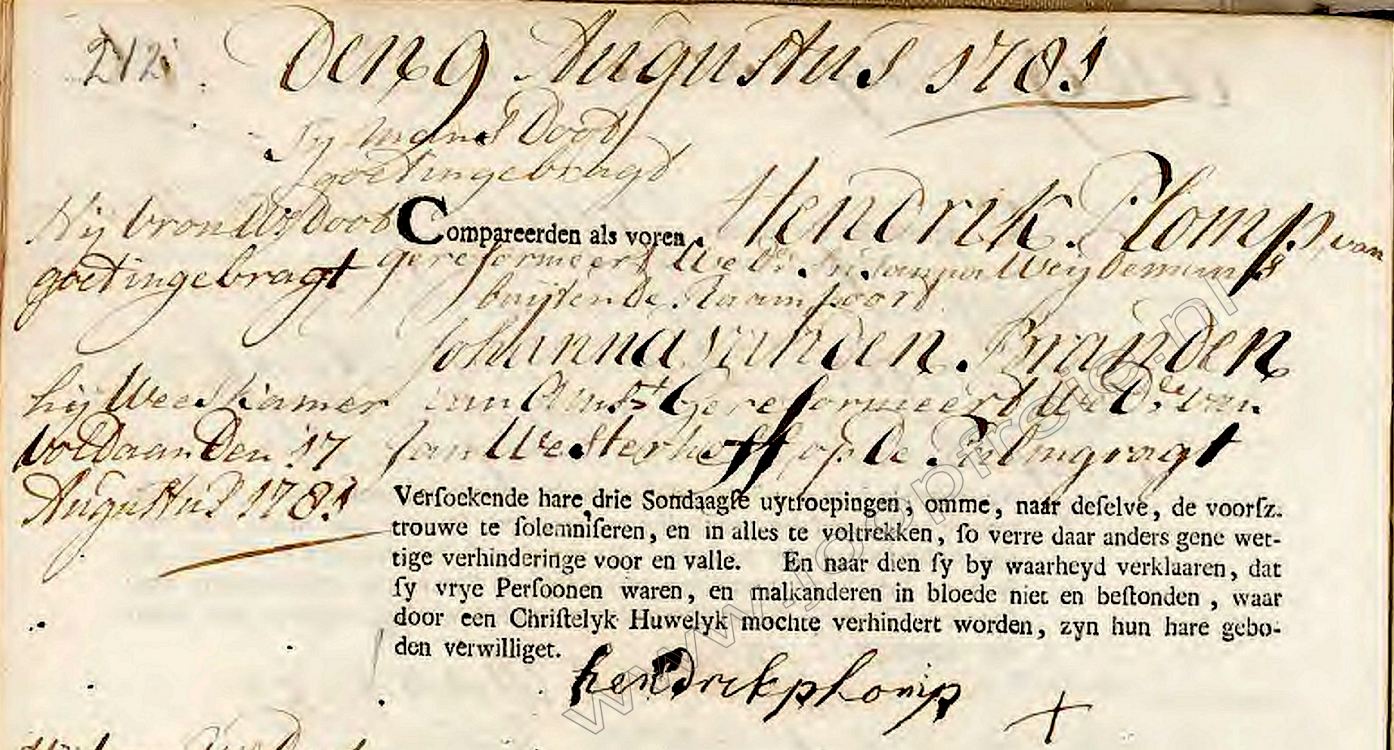 212.
Den 9 Augustus 1781
Sij mans Doot
goet ingebragt
Hij vrouws Doot
goet ingebragt
Compareerden als voren Hendrik Plomp, van
gereformeert Wed.r
buijten de Raampoort
Johanna van den Branden
hij Weeskamer
voldaan Den 17
Augustus 1781
van Amst. Gereformeert Wed.e van
Jan Westerhoff op de Palmgragt
Versoekende hare drie Sondaagse uytroepingen, omme, naar deselve, de voorsz.
trouwe te solemniseren, en in alles te voltrekken, so verre daar anders gene wet-
tige verhinderinge voor en valle. En naar dien sy by waarheyd verklaaren, dat
sy vrye Persoonen waren, en malkanderen in bloede niet en bestonden, waar
door een Christelyk Huwelyk mochte verhindert worden, zyn hun hare gebo-
den verwilliget.
hendrick plomp
www.jorisfreie.nl